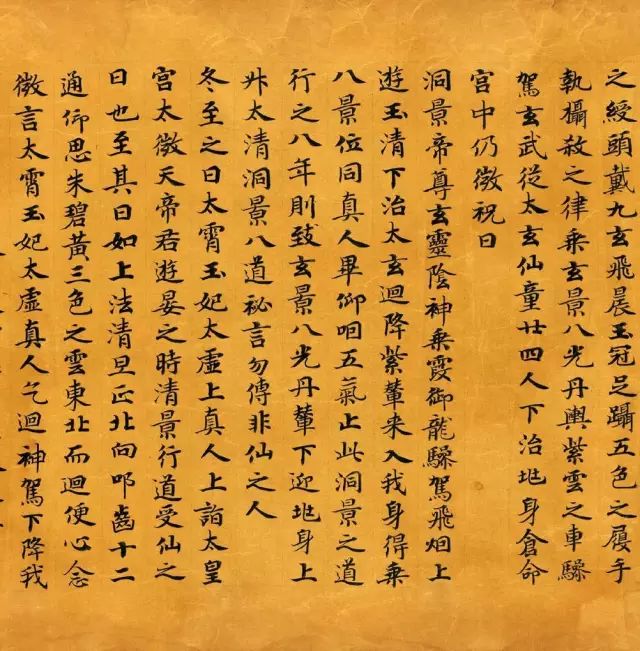 之綬頭戴九玄飛晨玉冠足躡五色之履手
執攝殺之律乘玄景八光丹輿紫雲之車驂
駕玄武從太玄仙童廿四人下治兆身倉命
宮中仍微祝曰
洞景帝尊玄靈陰神乘霞御龍驂駕飛烟上
遊玉清下治太玄迴降紫輦来入我身得乘
八景位同真人畢仰咽五氣止此洞景之道
行之八年則致玄景八光丹輦下迎兆身上
昇太清洞景八道祕言勿傳非仙之人
冬至之日太霄玉妃太虛上真人上詣太皇
宮太微天帝君遊宴之時清景行道受仙之
日也至其日如上法清旦正北向叩齒十二
通仰思朱碧黃三色之雲東北而迴便心念
微言太霄玉妃太虛真人乞迴神駕下降我